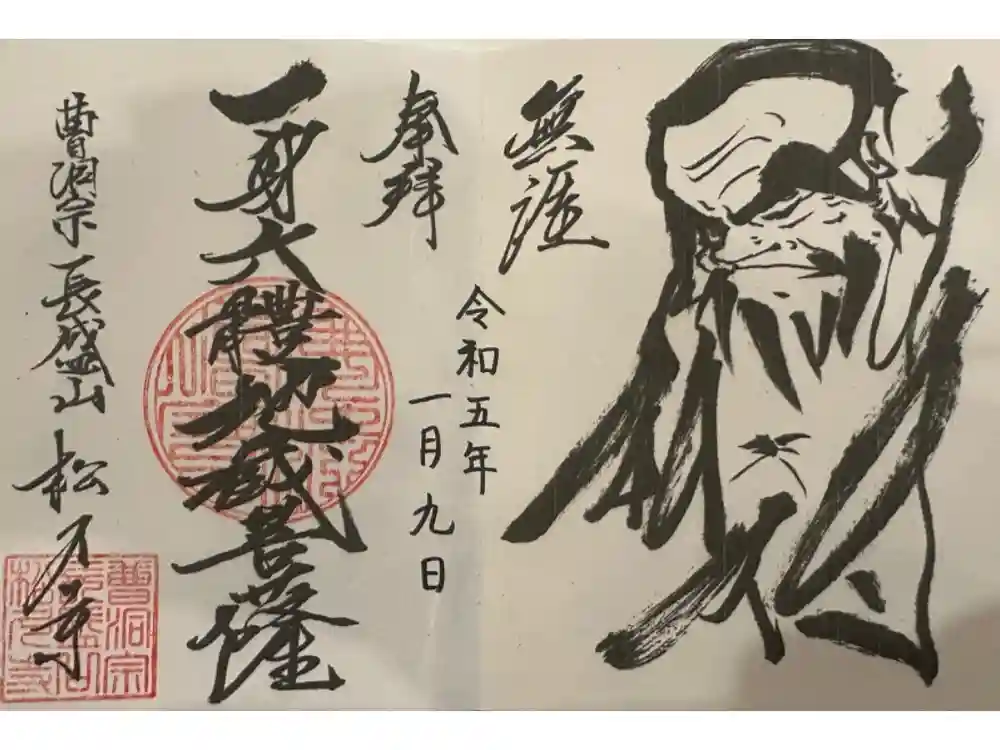 無涯
令和五年
一月九日
奉拝
一身六體地蔵菩薩
曹洞宗 長盛山 松 寺
曹洞宗
長盛山